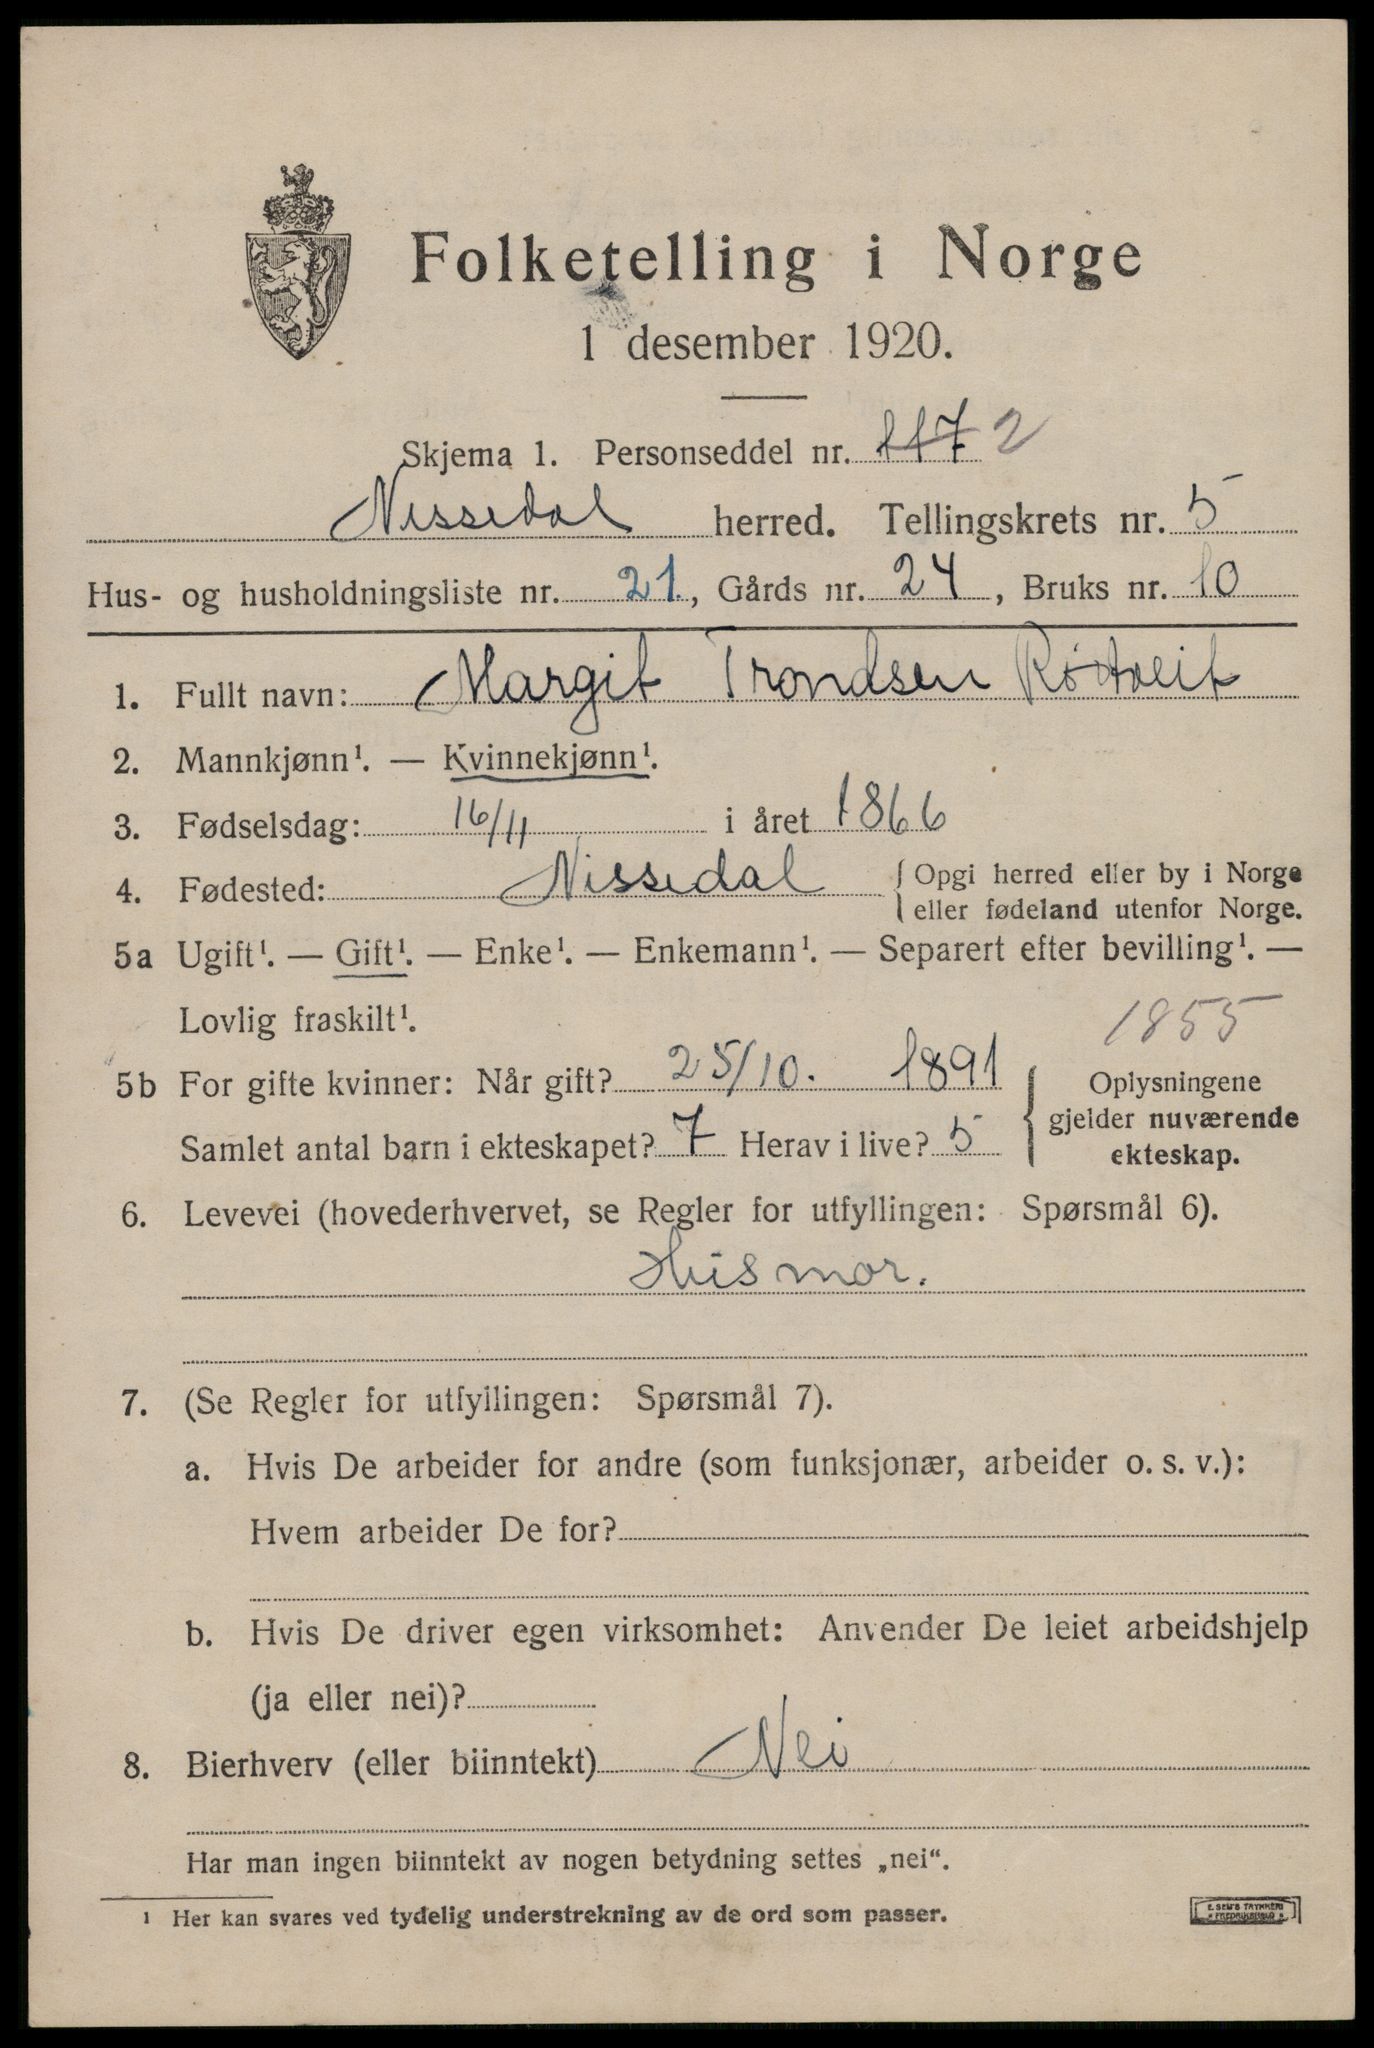 Folketelling i Norge
1 desember 1920.
Skjema 1. Personseddel nr. 117 2
Nissedal herred. Tellingskrets nr. 5
Hus- og husholdningsliste nr. 21., Gårds nr. 24, Bruks nr. 10
1. Fullt navn: Margit Trondsen Røitveit
2. Mannkjønn¹. — Kvinnekjønn¹.
3. Fødselsdag: 16/11 i året 1866
4. Fødested: Nissedal { Opgi herred eller by i Norge
eller fødeland utenfor Norge.
5a Ugift¹. — Gift¹. — Enke¹. — Enkemann¹. — Separert efter bevilling¹. —
Lovlig fraskilt¹.
1855
5b For gifte kvinner: Når gift? 25/10. 1891 { Oplysningene
gjelder nuværende
Samlet antal barn i ekteskapet? 7 Herav i live? 5
ekteskap.
6. Levevei (hovederhvervet, se Regler for utfyllingen: Spørsmål 6).
Husmor.
7. (Se Regler for utfyllingen: Spørsmål 7).
a. Hvis De arbeider for andre (som funksjonær, arbeider o. s. v.):
Hvem arbeider De for?
b. Hvis De driver egen virksomhet: Anvender De leiet arbeidshjelp
(ja eller nei)?
8. Bierhverv (eller biinntekt) Nei
Har man ingen biinntekt av nogen betydning settes „nei“.
¹ Her kan svares ved tydelig understrekning av de ord som passer.
E. SEM'S TRYKKERI
FREDRIKSHALD